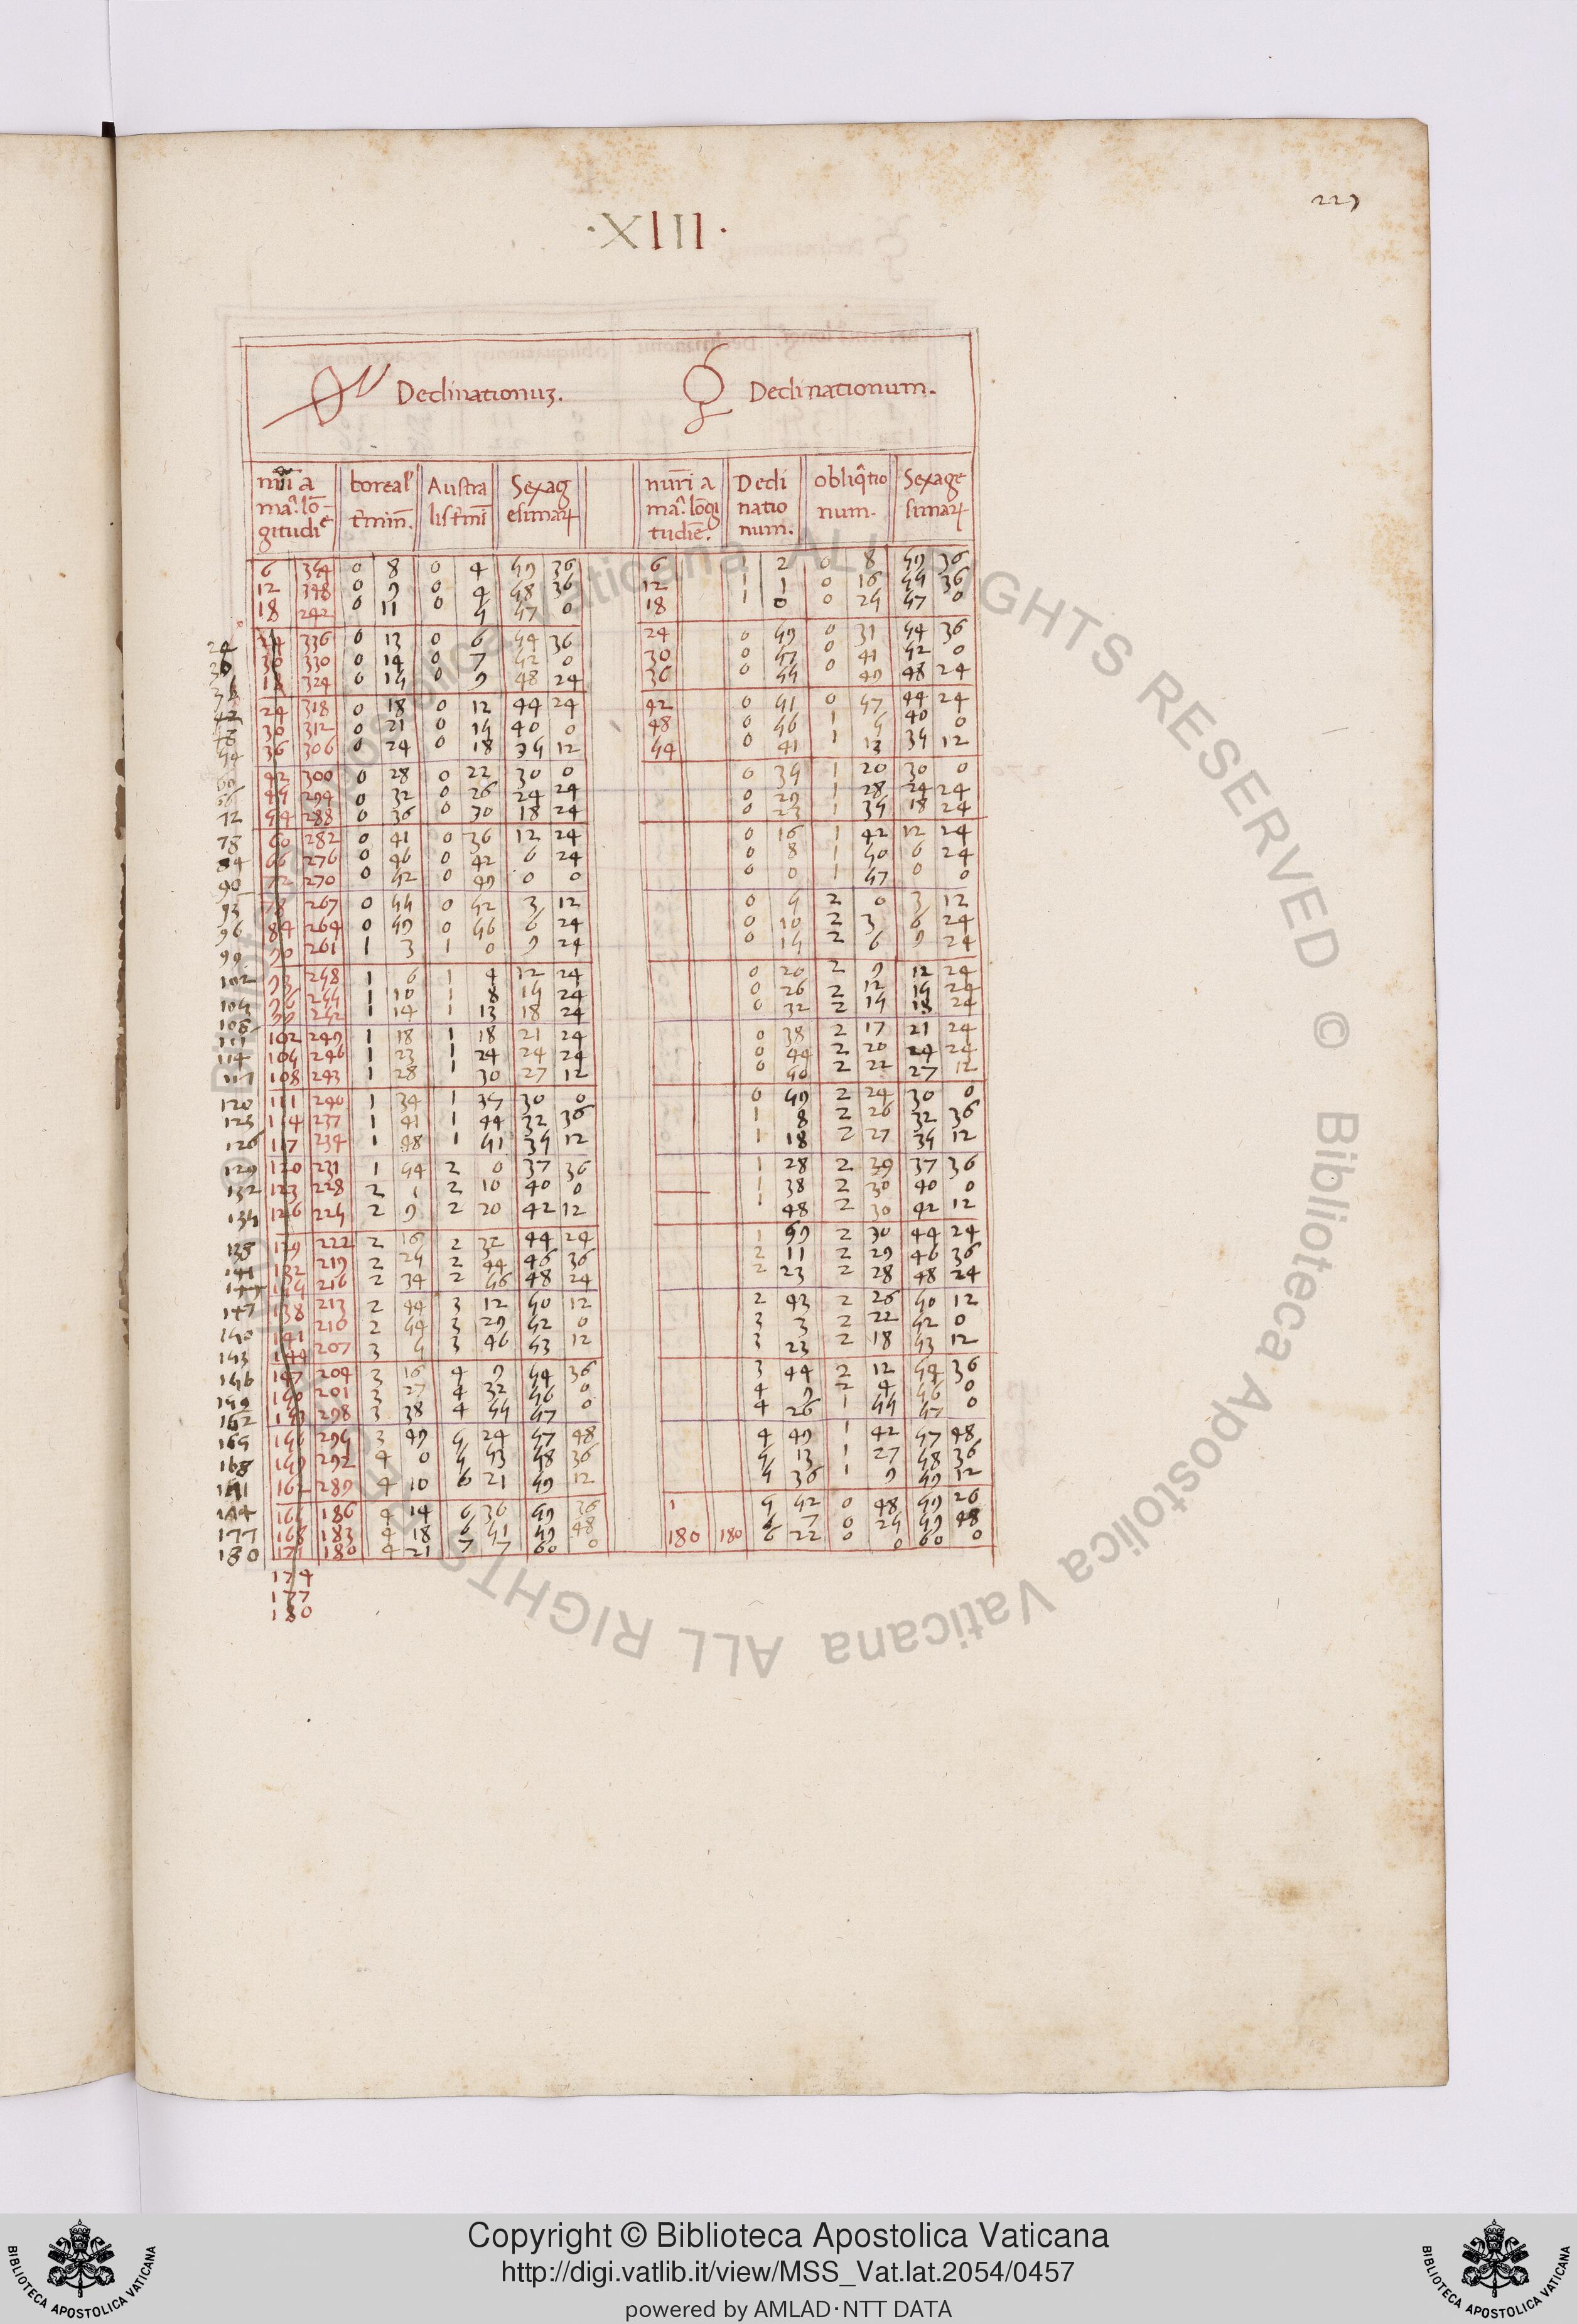 229
·XIII·
♂ Declinationuʒ. ♀ Declinationum.
nūi a ma.ᵃ lō-gitudīe boreal' t̄min̄. Austra lis t̄mī Sexag esimaꝝ nūri a ma.ᵃ lōgi tudīe. Decli natio num. obliq̄tio num. Sexage simaꝝ
6 354 0 8 0 4 59 36 6 1 2 0 8 59 36
12 348 0 9 0 4 58 36 12 1 1 0 16 58 36
18 242 0 11 0 5 57 0 18 1 0 0 25 57 0
24 24 336 0 13 0 6 54 36 24 0 59 0 31 54 36
30 30 330 0 14 0 7 52 0 30 0 57 0 41 52 0
36 18 324 0 15 0 9 48 24 36 0 55 0 49 48 24
42 24 318 0 18 0 12 44 24 42 0 51 0 57 44 24
48 30 312 0 21 0 15 40 0 48 0 46 1 5 40 0
54 36 306 0 24 0 18 35 12 54 0 41 1 13 35 12
60 42 300 0 28 0 22 30 0 0 35 1 20 30 0
66 48 294 0 32 0 26 24 24 0 29 1 28 24 24
72 54 288 0 36 0 30 18 24 0 23 1 35 18 24
78 60 282 0 41 0 36 12 24 0 16 1 42 12 24
84 66 276 0 46 0 42 6 24 0 8 1 50 6 24
90 72 270 0 52 0 49 0 0 0 0 1 57 0 0
93 78 267 0 55 0 52 3 12 0 5 2 0 3 12
96 84 264 0 59 0 56 6 24 0 10 2 3 6 24
99 90 261 1 3 1 0 9 24 0 15 2 6 9 24
102 93 258 1 6 1 4 12 24 0 20 2 9 12 24
105 96 255 1 10 1 8 15 24 0 26 2 12 15 24
108 99 252 1 14 1 13 18 24 0 32 2 15 18 24
111 102 249 1 18 1 18 21 24 0 38 2 17 21 24
114 105 246 1 23 1 24 24 24 0 44 2 20 24 24
117 108 243 1 28 1 30 27 12 0 50 2 22 27 12
120 111 240 1 34 1 37 30 0 0 59 2 24 30 0
123 114 237 1 41 1 44 32 36 1 8 2 26 32 36
126 117 234 1 48 1 51 35 12 1 18 2 27 35 12
129 120 231 1 54 2 0 37 36 1 28 2 29 37 36
132 123 228 2 1 2 10 40 0 1 38 2 30 40 0
135 126 225 2 9 2 20 42 12 1 48 2 30 42 12
138 129 222 2 16 2 32 44 24 1 59 2 30 44 24
141 132 219 2 25 2 44 46 36 2 11 2 29 46 36
144 135 216 2 34 2 56 48 24 2 23 2 28 48 24
147 138 213 2 44 3 12 50 12 2 43 2 26 50 12
150 141 210 2 54 3 29 52 0 3 3 2 22 52 0
153 144 207 3 5 3 46 53 12 3 23 2 18 53 12
156 147 204 3 16 4 9 54 36 3 44 2 12 54 36
159 150 201 3 27 4 32 56 0 4 5 2 4 56 0
162 153 298 3 38 4 55 57 0 4 26 1 55 57 0
165 156 295 3 49 5 24 57 48 4 49 1 42 57 48
168 159 292 4 0 5 53 58 36 5 13 1 27 58 36
171 162 289 4 10 6 21 59 12 5 36 1 9 59 12
174 165 186 4 14 6 36 59 36 1 5 52 0 48 59 26
177 168 183 4 18 6 51 59 48 6 7 0 25 59 48
180 171 180 4 21 7 7 60 0 180 180 6 22 0 0 60 0
174
177
180
Copyright © Biblioteca Apostolica Vaticana
http://digi.vatlib.it/view/MSS_Vat.lat.2054/0457
powered by AMLAD·NTT DATA
BIBLIOTECA APOSTOLICA VATICANA
BIBLIOTECA APOSTOLICA VATICANA
© Biblioteca Apostolica Vaticana ALL RIGHTS RESERVED © Biblioteca Apostolica Vaticana ALL RIGHTS